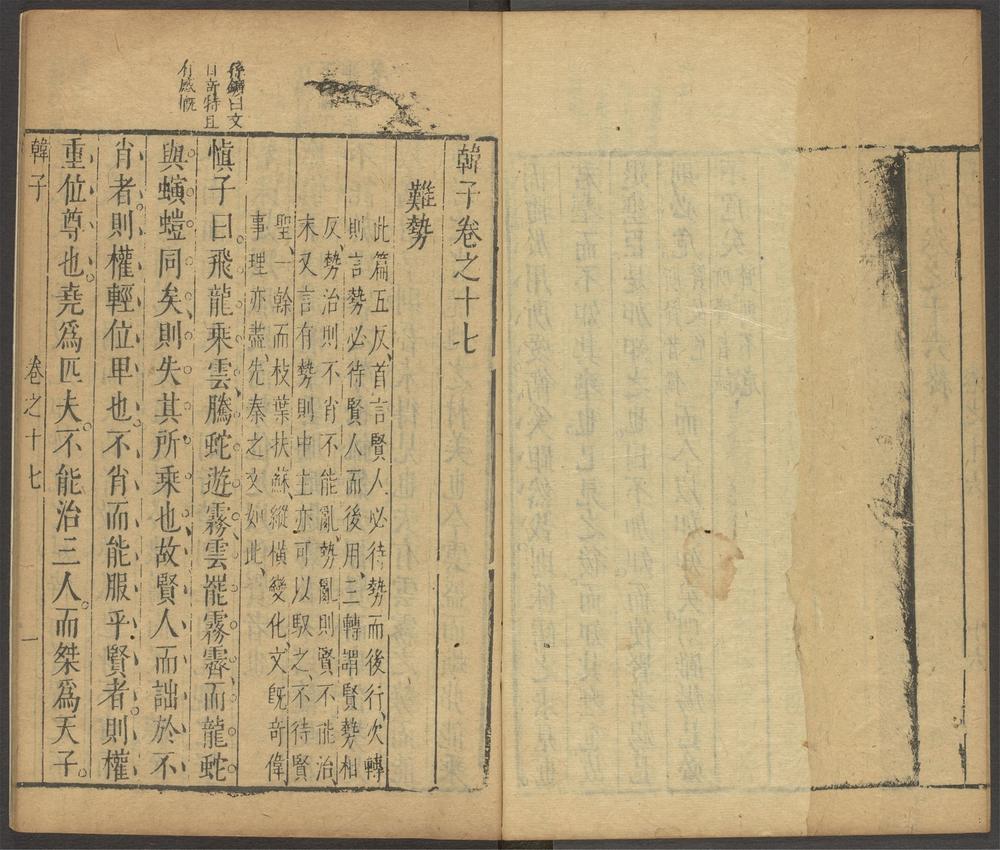 韓子卷之十七
難勢
此篇五反、首言賢人必待勢而後行、次轉
則言勢必待賢人而後用、三轉謂賢勢相
反、勢治則不肖不能亂、勢亂則賢不能治、
末又言有勢則中主亦可以馭之、不待賢
聖、一幹而枝葉扶蘇、縱橫變化、文旣奇偉
事理亦盡、先秦之文如此、
孫鑛曰文
日奇特且
有感慨
愼子曰。飛龍乘雲。騰蛇遊霧。雲罷霧霽、而龍蛇
與螾螘同矣。則失其所乘也。故賢人而詘於不
肖者、則權輕位卑也。不肖而能服乎賢者、則權
重位尊也。堯爲匹夫。不能治三人。而桀爲天子。
韓子 卷之十七 一